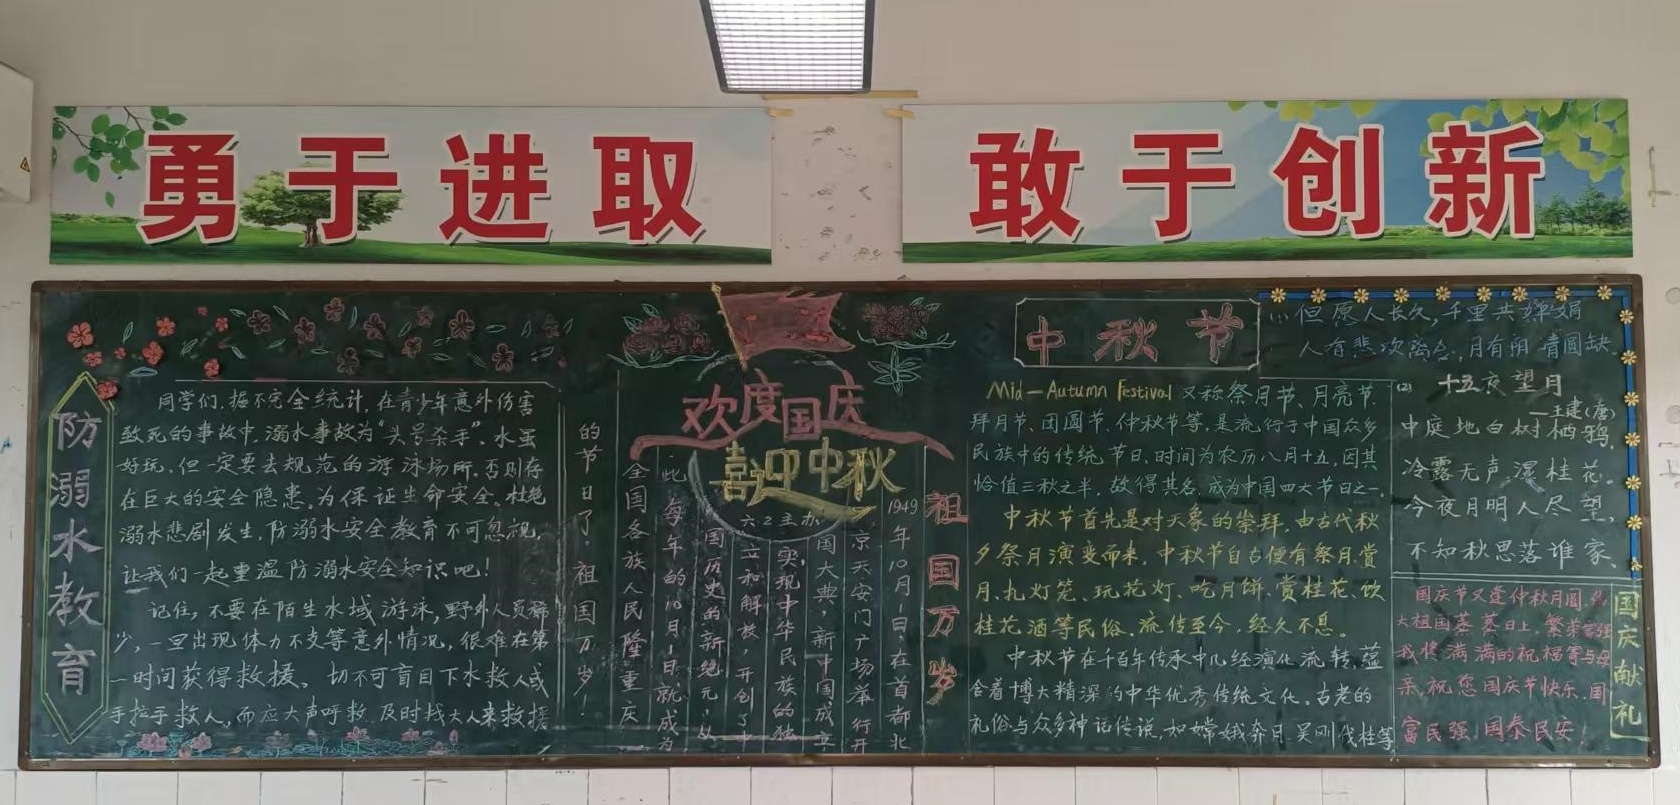 勇于进取
敢于创新
防溺水教育
同学们,据不完全统计,在青少年意外伤害
致死的事故中,溺水事故为“头号杀手”、水虽
好玩,但一定要去规范的游泳场所,否则存
在巨大的安全隐患。为保证生命安全。杜绝
溺水悲剧发生,防溺水安全教育不可忽视,
让我们一起重温防溺水安全知识吧!
记住,不要在陌生水域游泳,野外人员稀
少,一旦出现体力不支等意外情况,很难在第
一时间获得救援、切不可盲目下水救人或
手拉手救人,而应大声呼救,及时找大人来救援
欢度国庆
喜迎中秋
六2主办
祖国万岁
1949年10月1日,在首都北
京天安门广场举行开
国大典,新中国成立
实现中华民族的独
立和解放,开创了中
国历史的新纪元,从
此,每年的10月1日就成为
全国各族人民隆重庆
的节日了 祖国万岁!
中秋节
Mid-Autumn Festival 又称祭月节、月亮节、
拜月节、团圆节、仲秋节等,是流行于中国众多
民族中的传统节日,时间为农历八月十五,因其
恰值三秋之半,故得其名,成为中国四大节日之一,
中秋节首先是对天象的崇拜,由古代秋
夕祭月演变而来,中秋节自古便有祭月、赏
月、扎灯笼、玩花灯、吃月饼、赏桂花、饮
桂花酒等民俗,流传至今,经久不息。
中秋节在千百年传承中几经演化流转,蕴
含着博大精深的中华优秀传统文化。古老的
礼俗与众多神话传说,如嫦娥奔月,吴刚伐桂等
但愿人长久,千里共婵娟
人有悲欢离合,月有阴晴圆缺
(2) 十五夜望月
—王建(唐)
中庭地白树栖鸦,
冷露无声湿桂花。
今夜月明人尽望,
不知秋思落谁家
国庆献礼
国庆节又逢仲秋月圆,伟
大祖国蒸蒸日上,繁荣富强
我将满满的祝福寄与母
亲,祝您国庆节快乐,国
富民强!国泰民安!